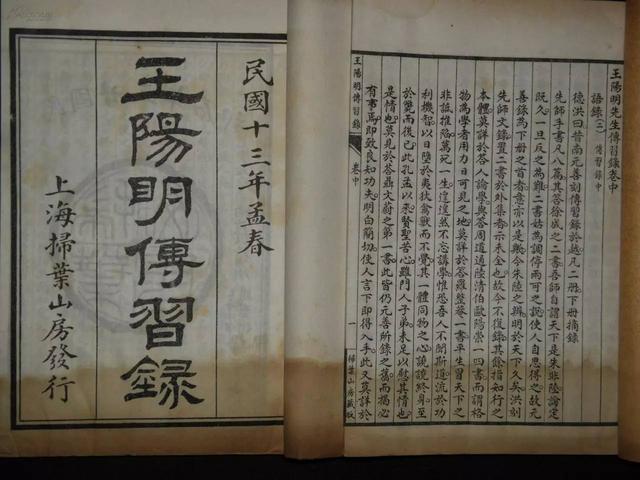 民國十三年孟春
王陽明傳習錄
上海掃葉山房發行
王陽明先生傳習錄卷中
語錄(二) 傳習錄中
德洪曰昔南元善刻傳習錄於越凡二冊下冊摘錄
先師手書凡八篇其答徐成之二書吾師自謂天下是朱非陸論定
既久一旦反之為難二書姑為調停兩可之說使人自思得之故元
善錄為下冊之首者意亦以是歟今朱陸之辨明於天下久矣洪刻
先師文錄置二書於外集者示未全也故今不復錄其餘指知行之
本體莫詳於答人論學與答周道通陸清伯歐陽崇一四書而謂格
物為學者用力日可見之地莫詳於答羅整菴一書平生冒天下之
非詆推陷萬死一生遑遑然不忘講學惟恐吾人不聞斯道流於功
利機智以日墮於夷狄禽獸而不覺其一體同物之心譊譊終身至
於斃而後已此孔孟以來賢聖苦心雖門人子弟未足以慰其情也
是情也莫見於答聶文蔚之第一書此皆仍元善所錄之舊而揭必
有事焉即致良知功夫明白簡切使人言下即得入手此又莫詳於
王陽明傳習錄 卷中 一 掃葉山房藏版